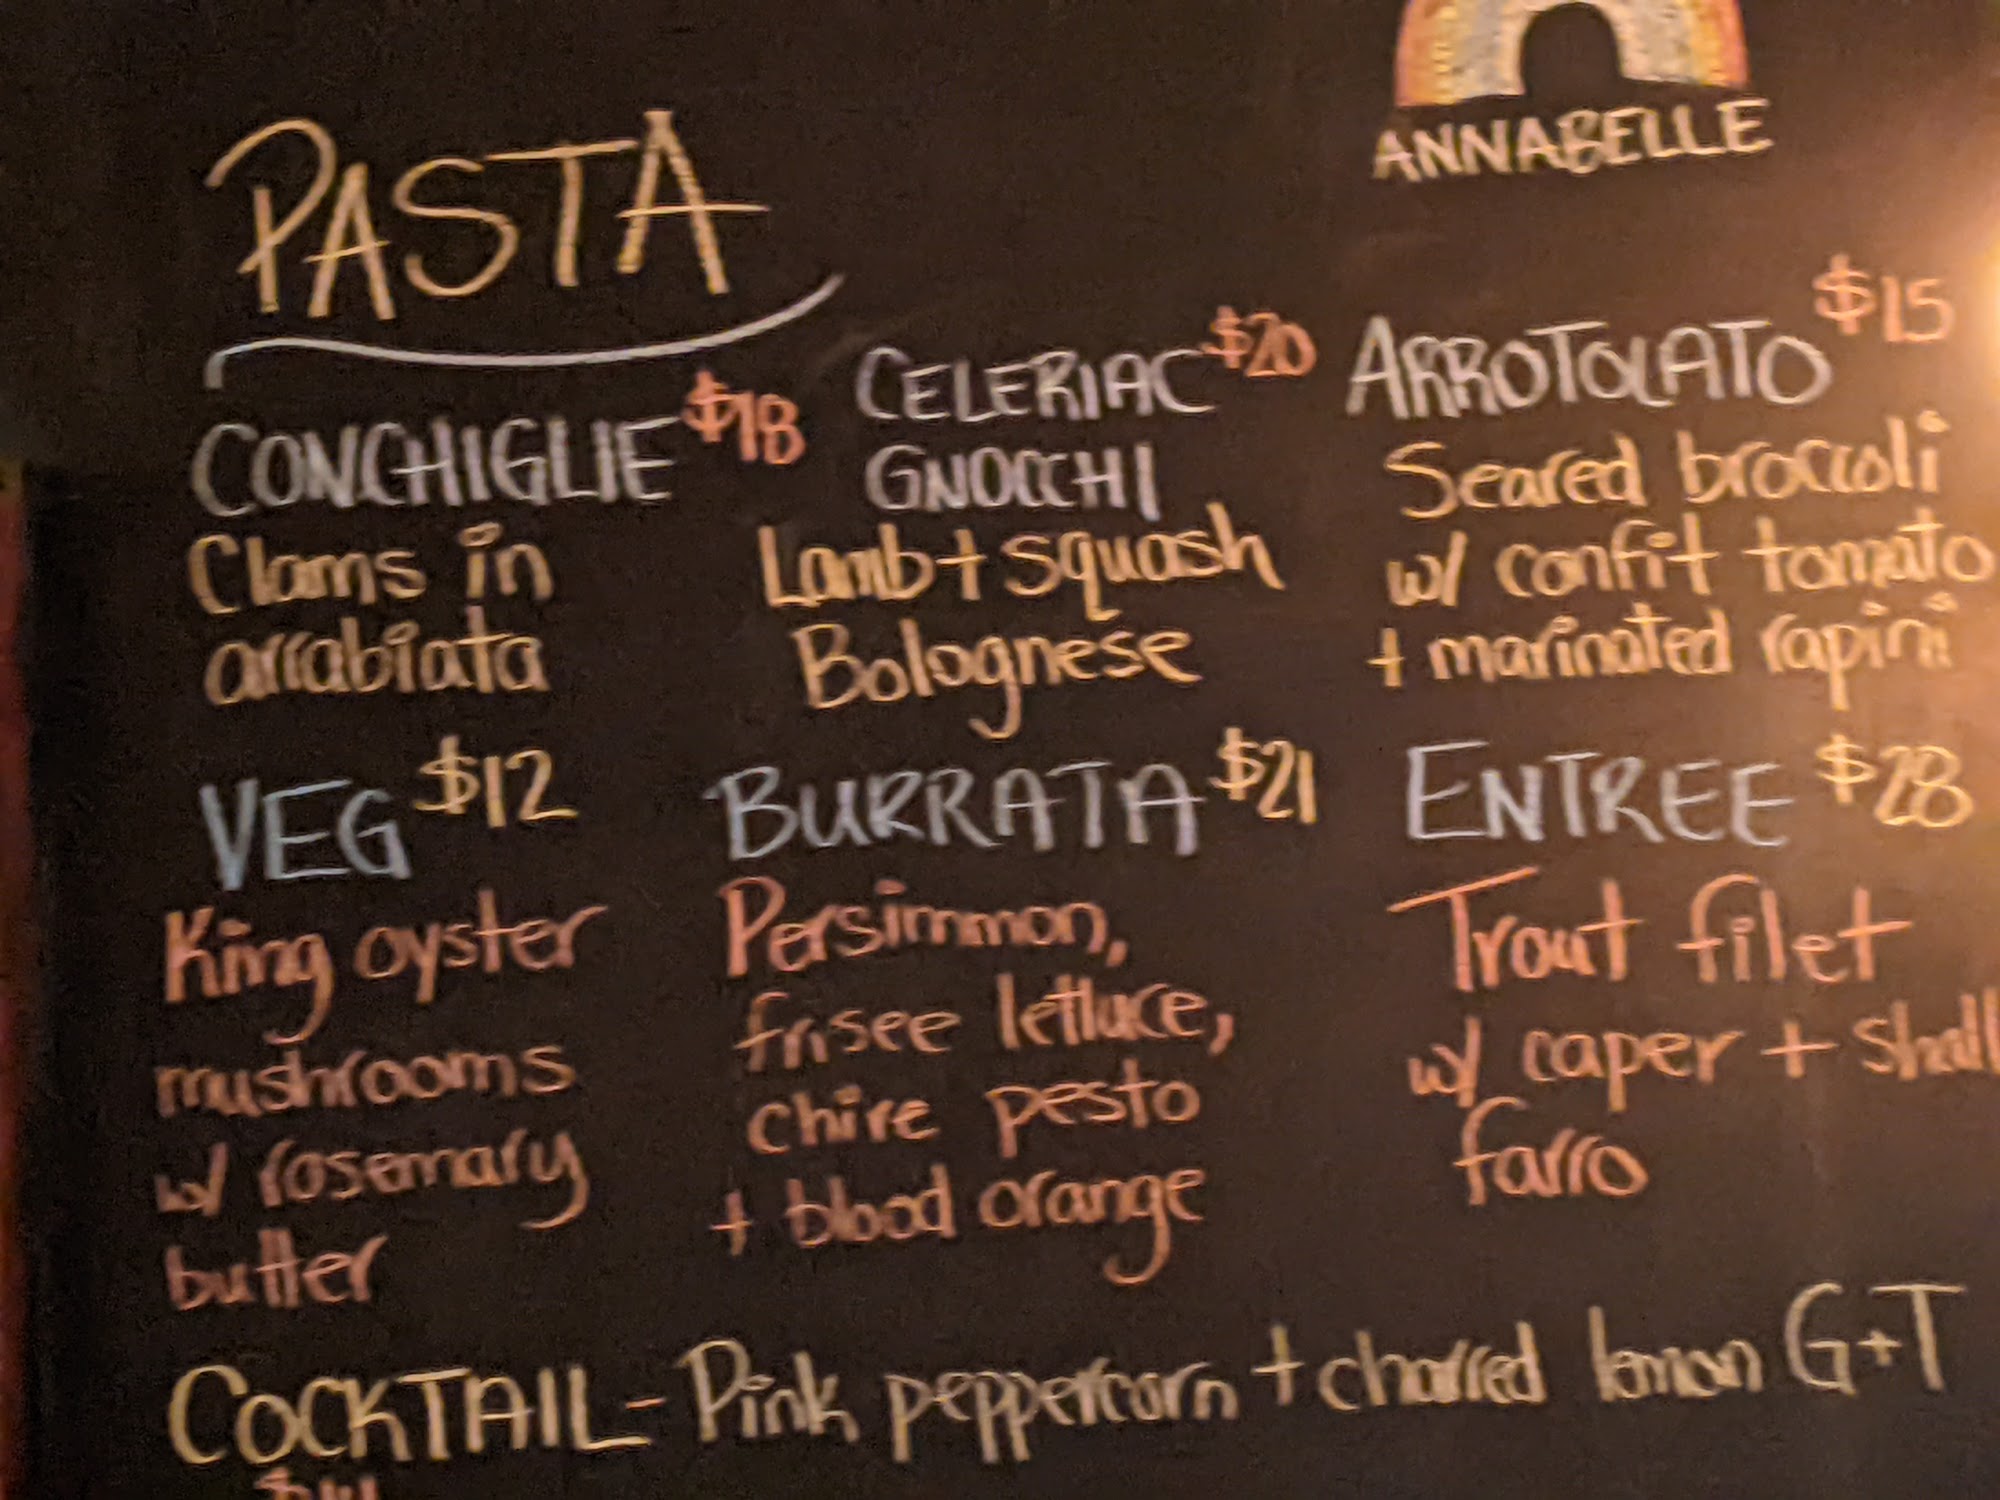 ANNABELLE
PASTA
CONCHIGLIE $18
Clams in
arrabiata
CELERIAC $20
GNOCCHI
Lamb + squash
Bolognese
ARROTOLATO $15
Seared broccoli
w/ confit tomato
+ marinated rapini
VEG $12
King oyster
mushrooms
w/ rosemary
butter
BURRATA $21
Persimmon,
frisee lettuce,
chive pesto
+ blood orange
ENTREE $28
Trout filet
w/ caper +
farro
COCKTAIL - Pink peppercorn + charred lemon G+T
$14